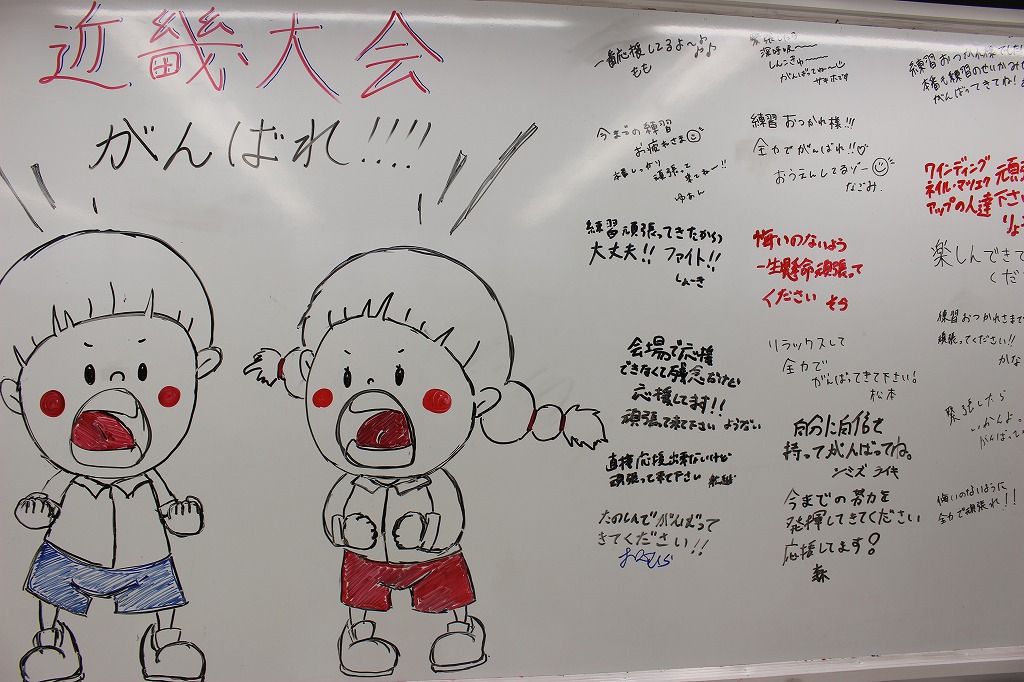 近畿大会
がんばれ!!!!
一番応援してるよ〜♪♪
もも
今までの練習
お疲れさま
本番しっかり
頑張って
来てねー!!
ゆあん
練習頑張ってきたから
大丈夫!! ファイト!!
しょーき
会場で応援
できなくて残念だけど
応援してます!!
頑張って来て下さい
直接応援出来ないけど
頑張って来て下さい
たのしんでがんばって
きてください!!
深呼吸〜
しんこきゅ〜
がんばってね〜
サキホです
練習おつかれ様!!!
全力でがんばれ!!♡
おうえんしてるゾー
なごみ.
悔いのないよう
一生懸命頑張って
ください そら
リラックスして
全力で
がんばってきて下さい!
松本
自分に自信を
持ってがんばってね。
シミズ ライキ
今までの努力を
発揮してきてください
応援してます!
森
練習おつかれ様でした
本番も練習のせいかみせ
がんばってきてね!
ワインディング
ネイル・マツエク 頑張
アップの人達下さい
りょう
楽しんできて
くだ
練習おつかれさまで
頑張ってください!!
かな
緊張したら
がんばって
悔いのないように
全力で頑張れ!!